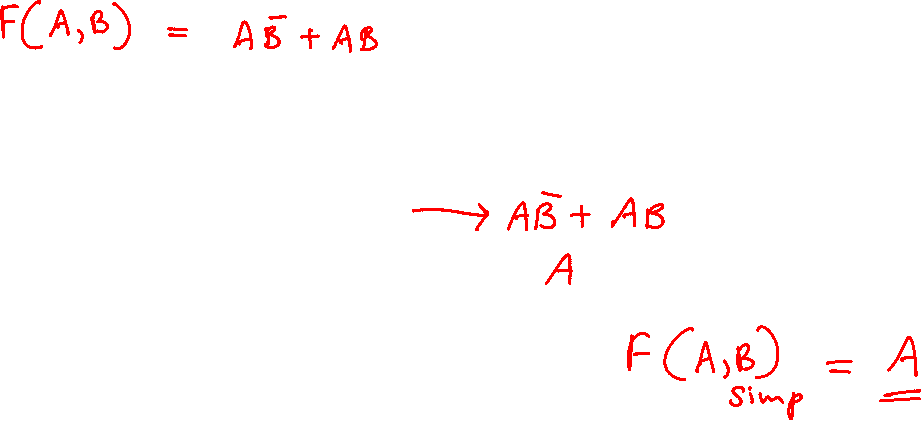 F(A,B) = AB̄ + AB
→ AB̄ + AB
A
F(A,B)simp = A